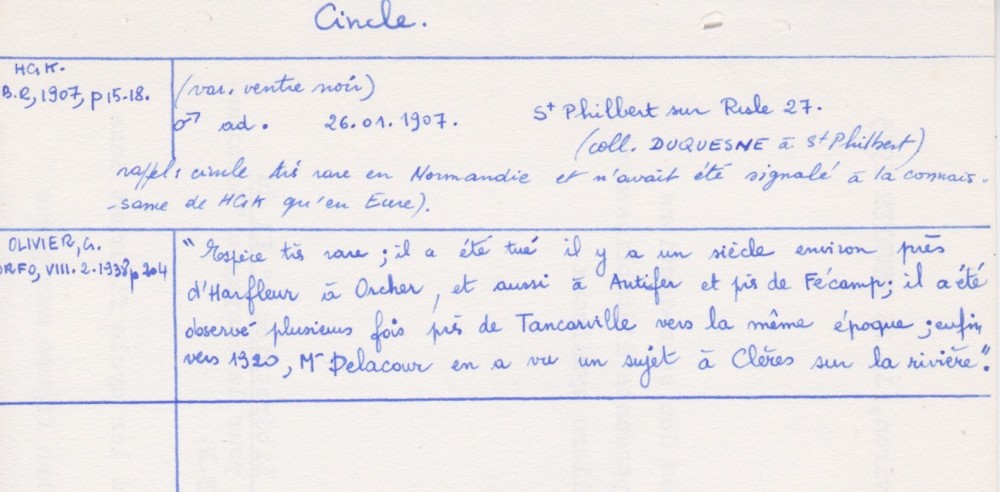 Cincle.
HGK.
B.R, 1907, p 15-18.
(var. ventre noir)
♂ ad. 26.01.1907. St Philbert sur Risle 27.
(coll. DUQUESNE à St Philbert)
rappel: cincle très rare en Normandie et n'avait été signalé à la connais-
-sance de HGK qu'en Eure).
OLIVIER, G.
ORFO, VIII. 2. 1938, p 204
"Espèce très rare ; il a été tué il y a un siècle environ près
d'Harfleur à Orcher, et aussi à Antifer et près de Fécamp; il a été
observé plusieurs fois près de Tancarville vers la même époque ; enfin,
vers 1920, Mr Delacour en a vu un sujet à Clères sur la rivière".